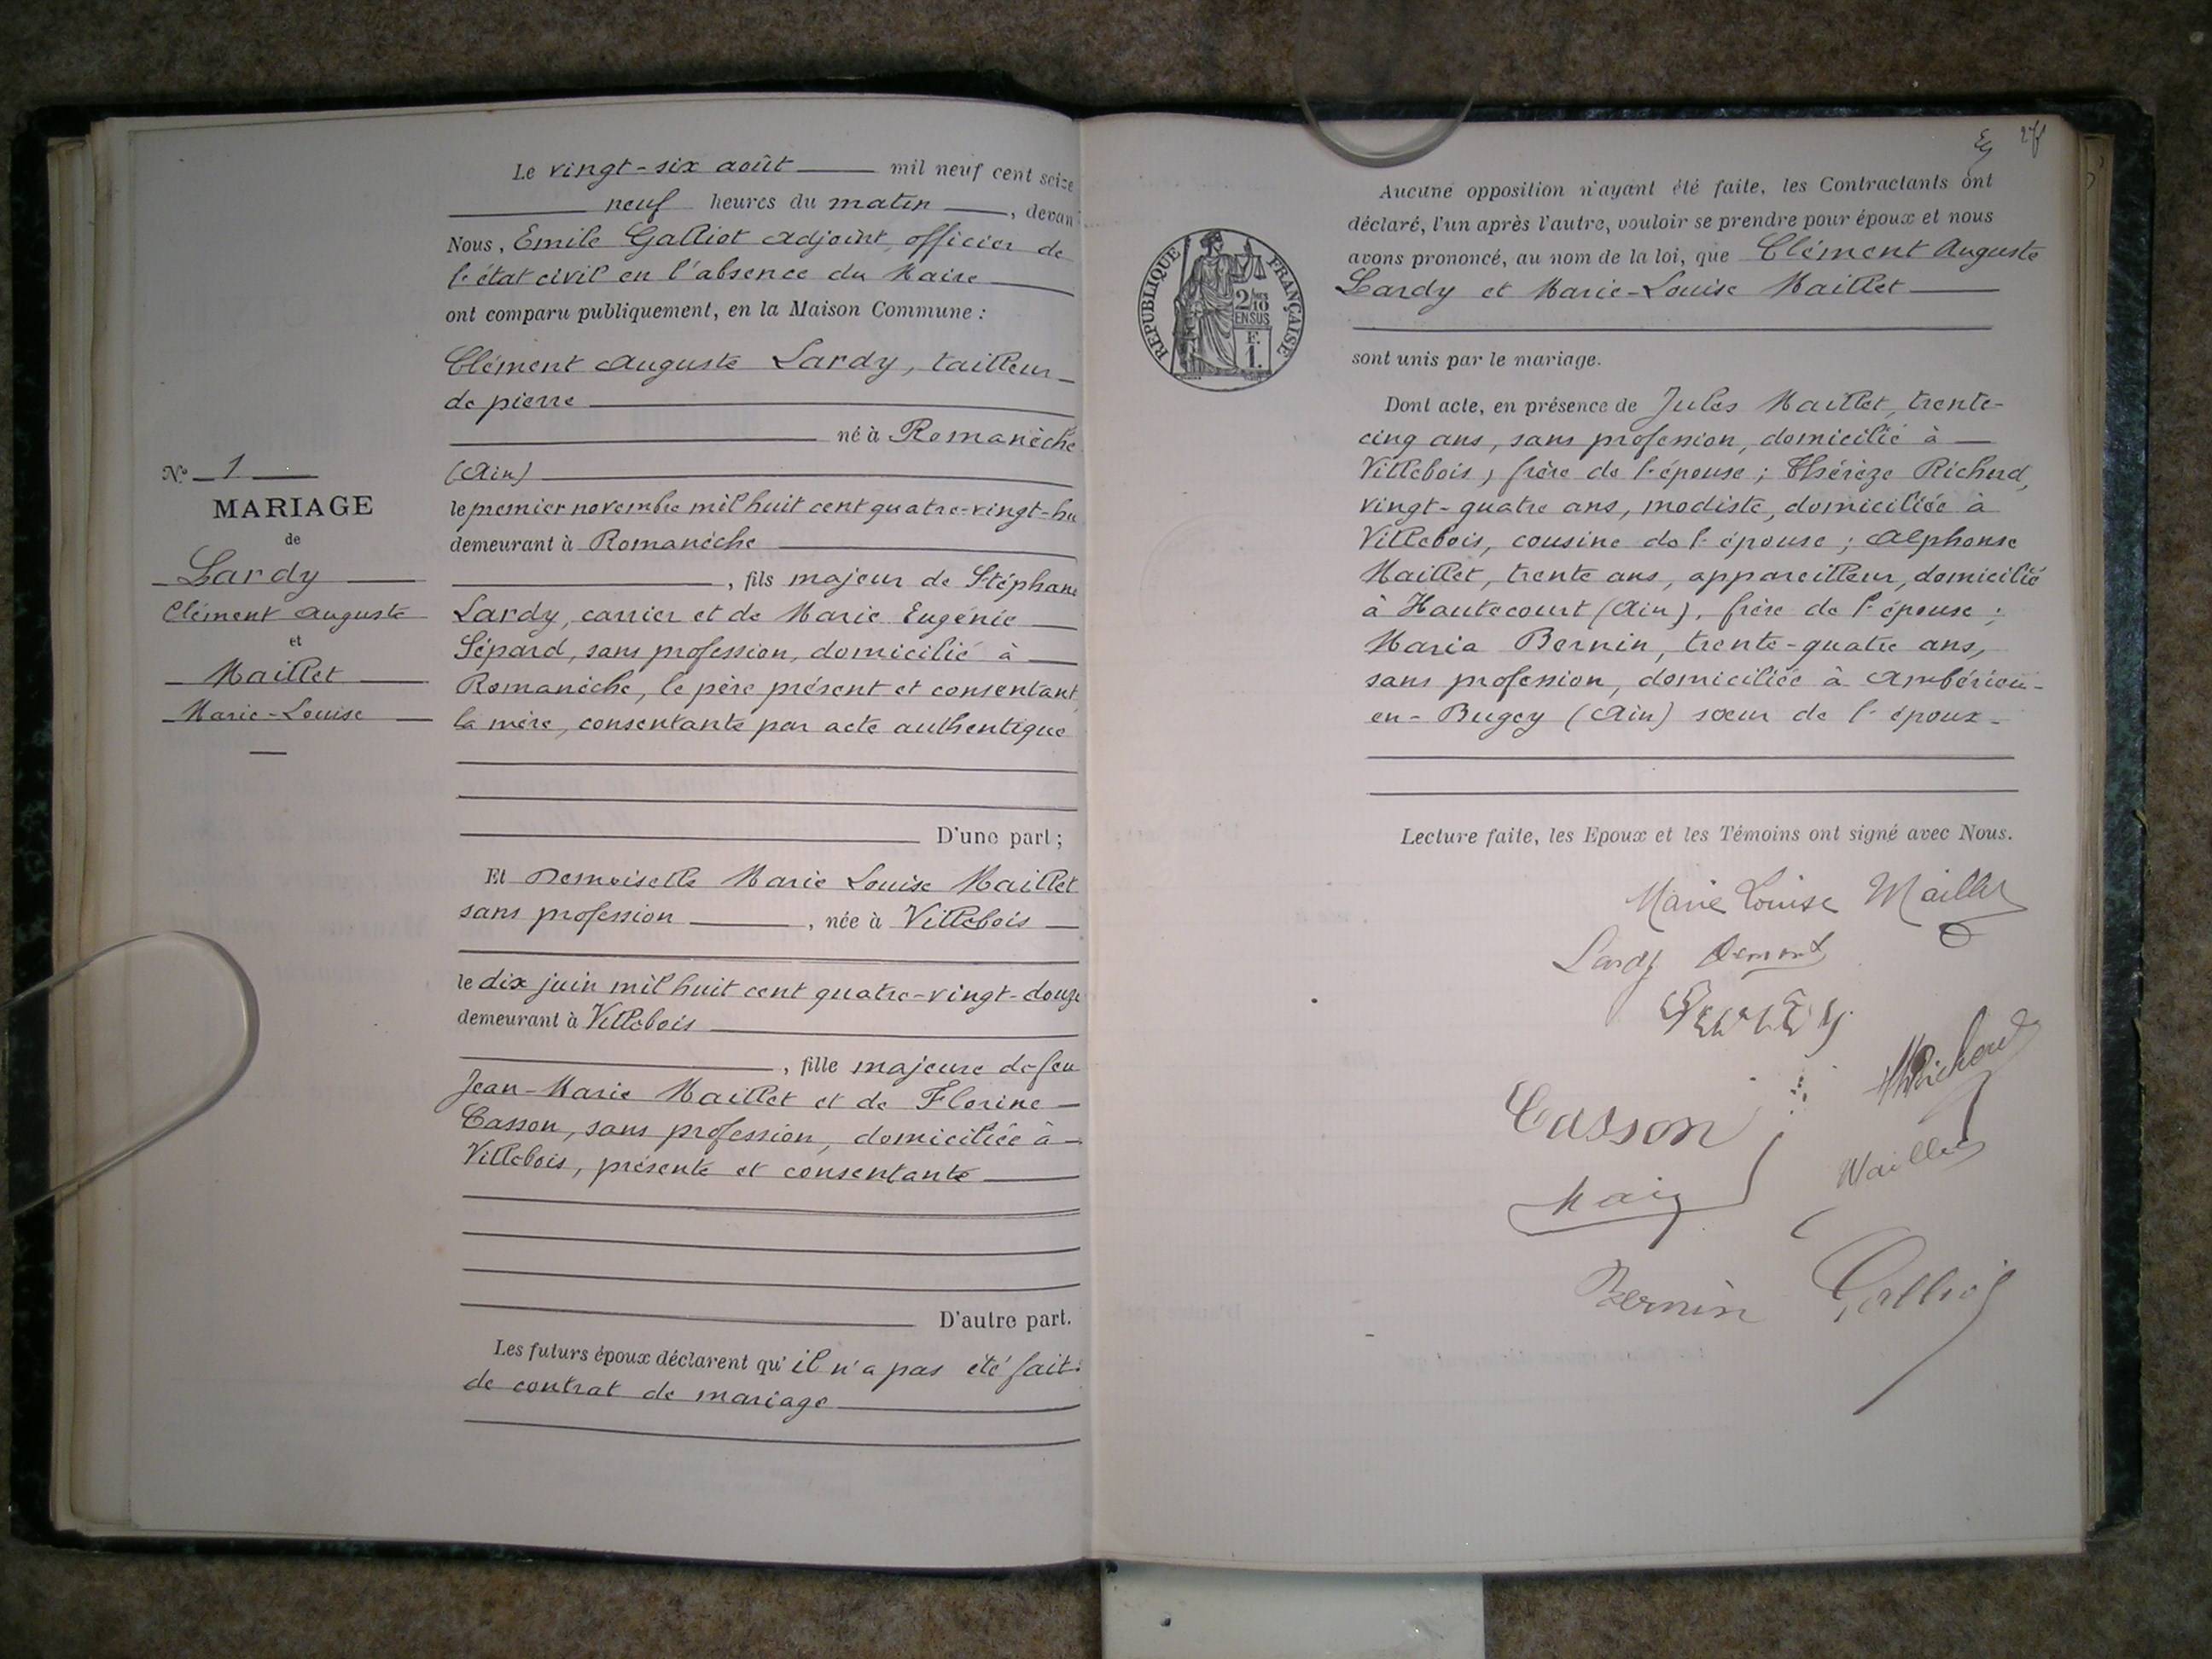 N° 1
MARIAGE
de
Lardy
Clément Auguste
et
Maillet
Marie-Louise
Le vingt-six août mil neuf cent seize
neuf heures du matin, devan
Nous, Emile Galliot adjoint, officier de
l'état civil en l'absence du Maire
ont comparu publiquement, en la Maison Commune :
Clément Auguste Lardy, tailleur
de pierre
né à Romanèche
(Ain)
le premier novembre mil huit cent quatre-vingt-hu
demeurant à Romanèche
, fils majeur de Stéphane
Lardy, carrier et de Marie Eugénie
Sépard, sans profession, domicilié à
Romanèche, le père présent et consentant,
la mère, consentante par acte authentique
D'une part ;
Et Demoiselle Marie Louise Maillet
sans profession, née à Villebois
le dix juin mil huit cent quatre-vingt-douze
demeurant à Villebois
, fille majeure de feu
Jean-Marie Maillet et de Florine
Casson, sans profession, domiciliée à
Villebois, présente et consentante
D'autre part.
Les futurs époux déclarent qu'il n'a pas été fait
de contrat de mariage
Aucune opposition n'ayant été faite, les Contractants ont
déclaré, l'un après l'autre, vouloir se prendre pour époux et nous
avons prononcé, au nom de la loi, que Clément Auguste
Lardy et Marie-Louise Maillet
RÉPUBLIQUE FRANÇAISE
2/10
EN SUS
F.
1.
sont unis par le mariage.
Dont acte, en présence de Jules Maillet, trente-
cinq ans, sans profession, domicilié à
Villebois, frère de l'épouse ; Thérèze Richerd,
vingt-quatre ans, modiste, domiciliée à
Villebois, cousine de l'épouse ; Alphonse
Maillet, trente ans, appareilleur, domicilié
à Hautecourt (Ain), frère de l'épouse ;
Maria Bernin, trente-quatre ans,
sans profession, domiciliée à Ambérieu-
en-Bugey (Ain) sœur de l'époux
Lecture faite, les Epoux et les Témoins ont signé avec Nous.
Marie Louise Maillet
Lardy
Richerd
Casson
Maillet
Bernin Galliot